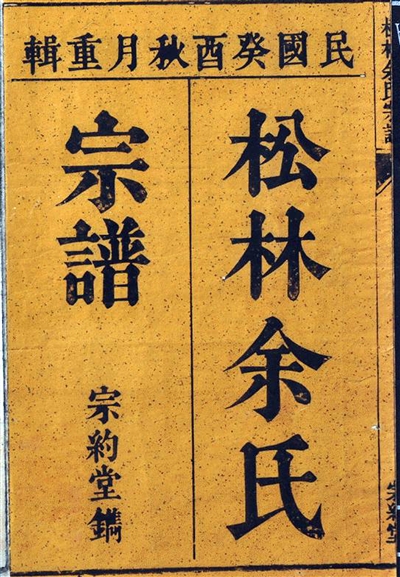 民國癸酉秋月重輯
松林余氏
宗譜
宗約堂鐫
松林余氏宗譜
宗約堂